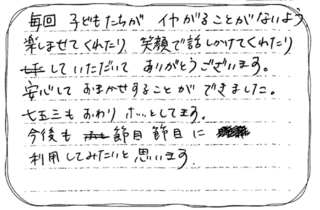 毎回 子どもたちが イヤがることがないよう
楽しませてくれたり 笑顔で話しかけてくれたり
していただいて ありがとうございます。
安心して おまかせすることが できました。
七五三も おわり ホッとしてます。
今後も 節目節目に
利用してみたいと思います